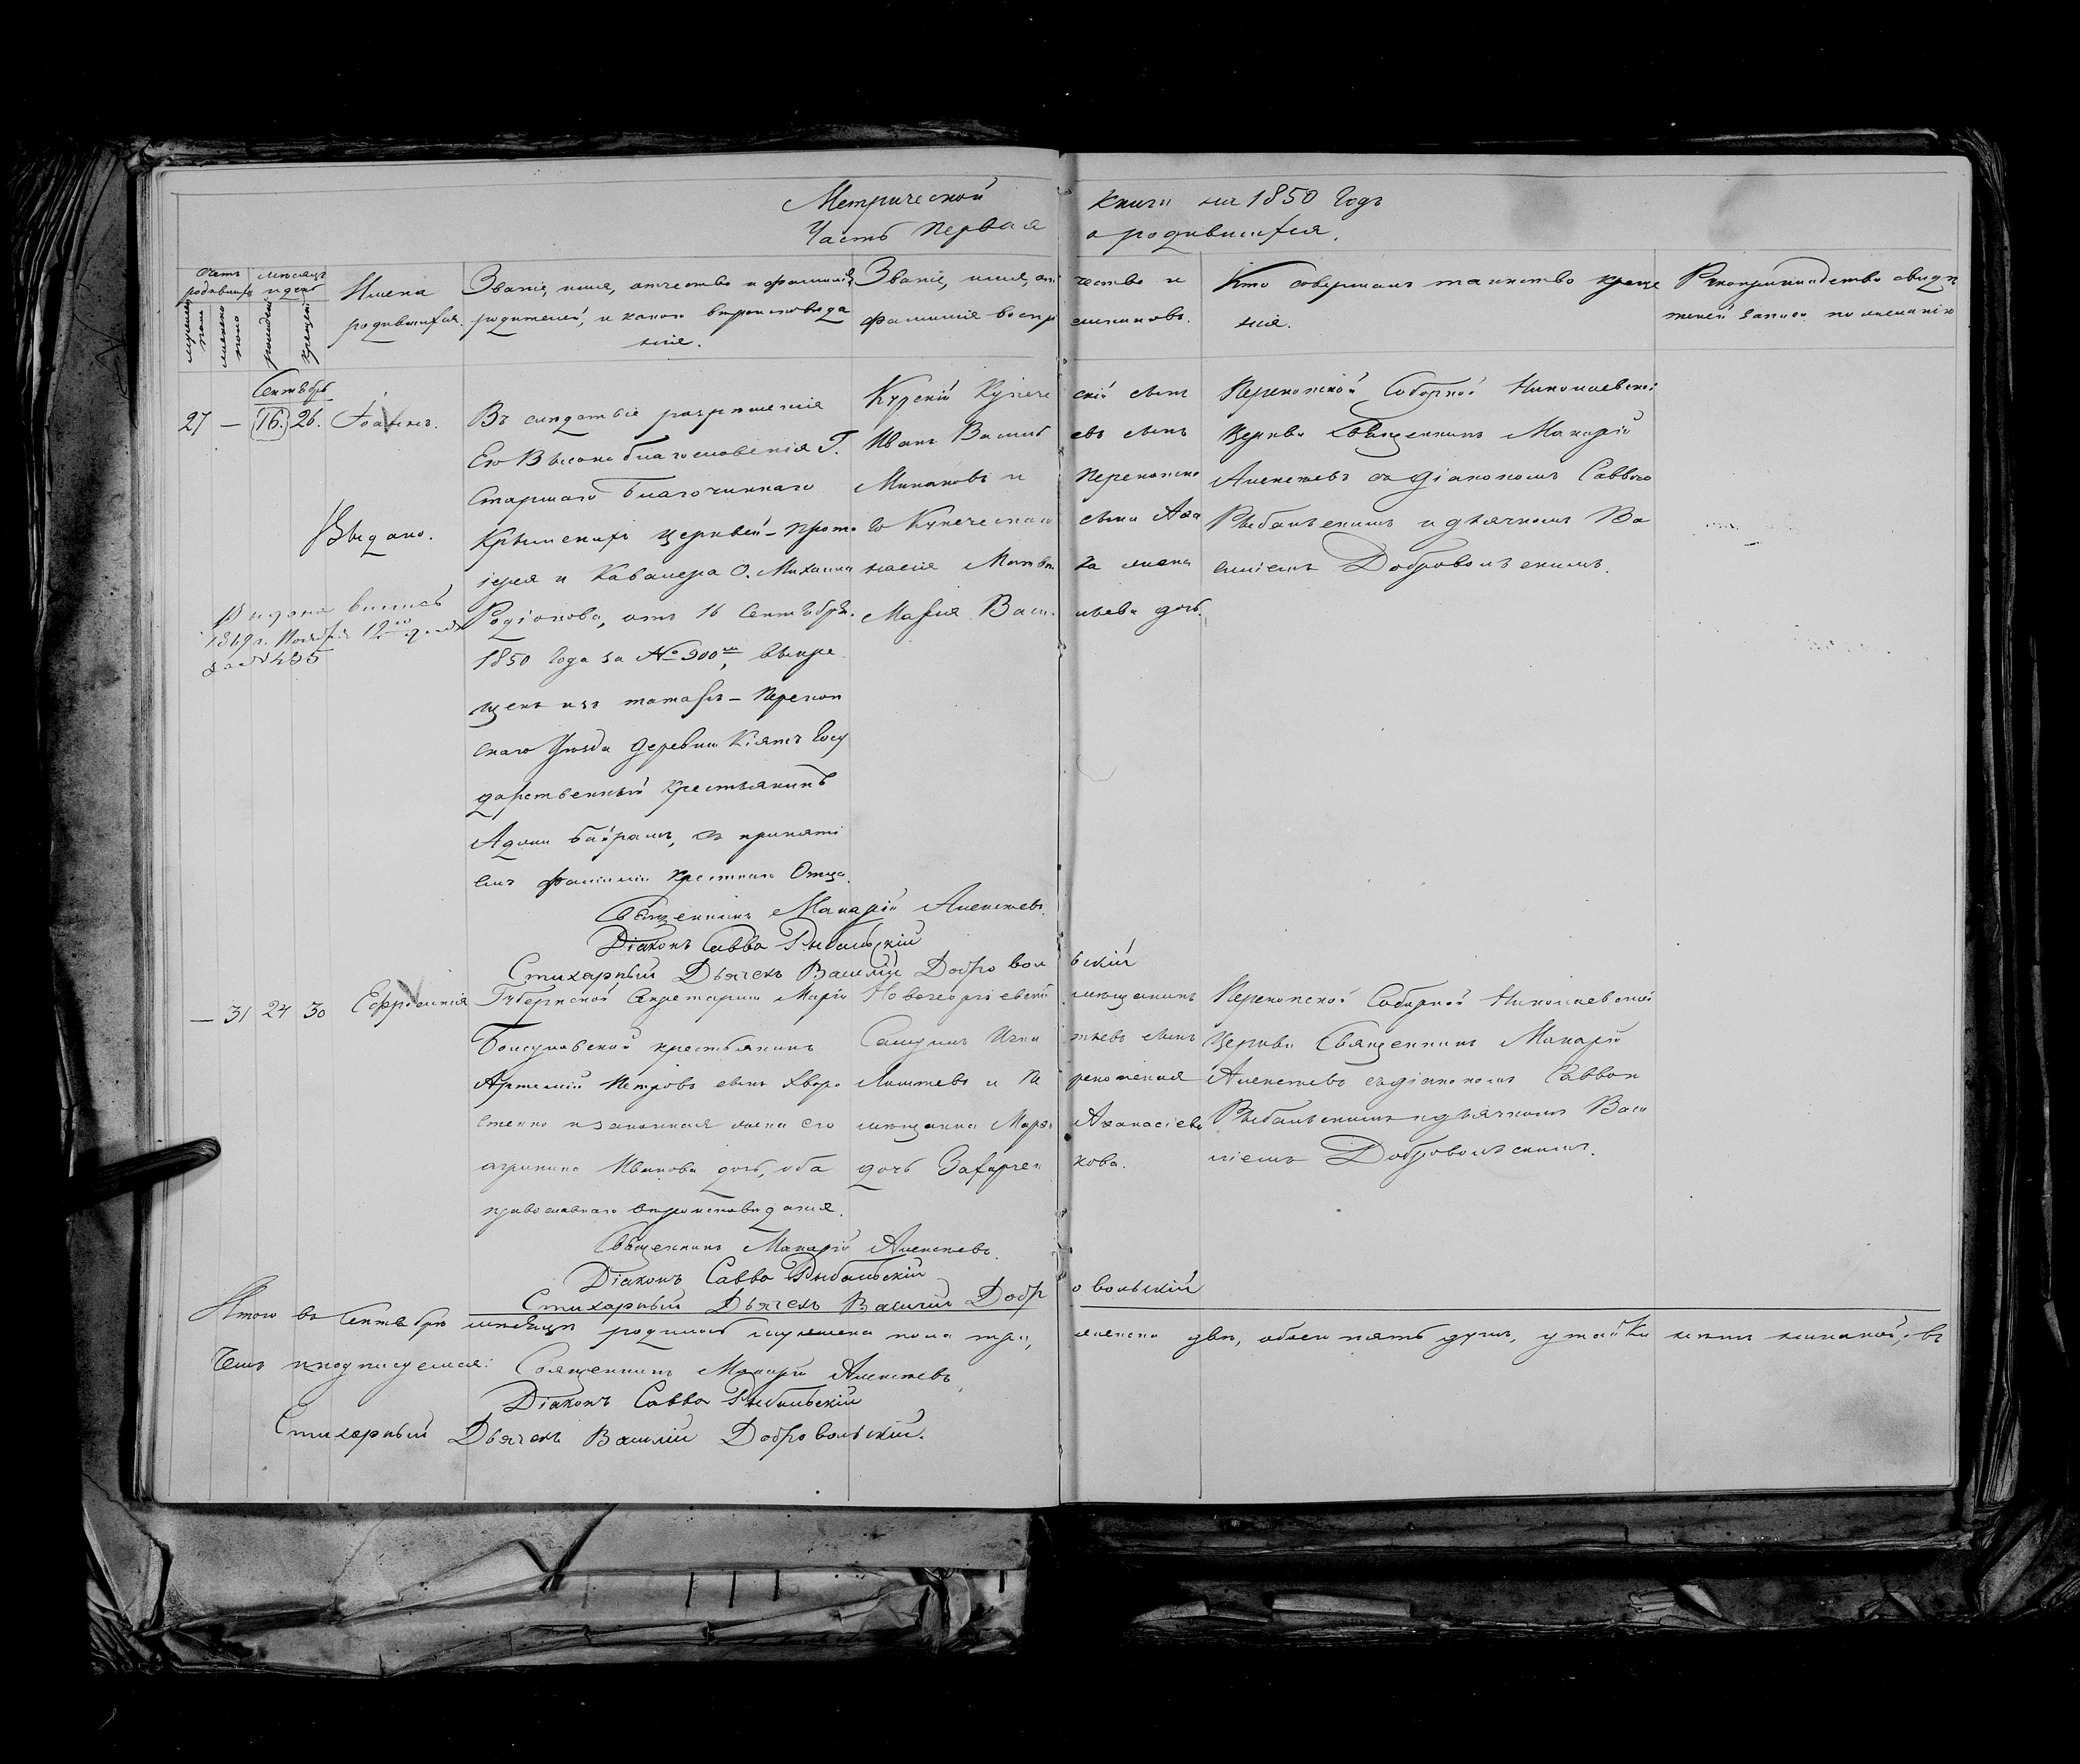 Метрической книги на 1850 Годъ
Часть Первая о родившихся.
Счетъ родившихся
мужеска пола
женска пола
Мѣсяцъ и день
рожденія
крещенія
Имена родившихся.
Званіе, имя, отчество и фамилія
родителей, и какого вѣроисповѣда
нія.
Званіе, имя, от чество и
фамилія воспр емниковъ.
Кто совершалъ таинство креще
нія.
Рукоприкладство свидѣ
телей записи по желанію
Сентябрь
27 — 16. 26. Іоаннъ.
Въ слѣдствіе разрѣшенія
Его Высокоблагословенія Г.
Старшаго Благочиннаго
Крымскихъ церквей - Прото
іерея и Кавалера О. Михаила
Родіонова, отъ 16 Сентября
1850 Года за № 900мъ, выкре
щенъ изъ татаръ - Перекоп
скаго Уѣзда деревни Кіятъ Госу
дарственный крестьянинъ
Аджи Байрамъ, съ приняті
емъ фамиліи крестнаго Отца.
Курскій Купече скій сынъ
Иванъ Васил евъ сынъ
Минаковъ и Перекопска
го Купеческаго сына Аѳа
насія Матвѣ ка жена
Марѳа Васи льева дочь.
Перекопской Соборной Николаевской
Церкви Священникъ Макарій
Алексѣевъ съ діакономъ Саввою
Рыбальскимъ и дьячкомъ Ва
силіемъ Добровольскимъ.
Выдано.
Выдана выпись
1869 г. Ноября 19го дня
за № 495
Священникъ Макарій Алексѣевъ.
Діаконъ Савва Рыбальскій
Стихарный Дьячекъ Василій Доброволь ьскій
— 31 24 30 Ефросинія
Губернской Секретарши Маріи
крестьянинъ
Артемій Петровъ сынъ Хворо
стенко и законная жена его
агрипина Иванова дочь, оба
православнаго вѣроисповѣданія.
Новогеоргіевскій мѣщанинъ
Самуилъ Игна тьевъ сынъ
и Пе рекопская
мѣщанка Марѳа Аѳанасіева
дочь Захарчен кова.
Перекопской Соборной Николаевской
Церкви Священникъ Макарій
Алексѣевъ съ діакономъ Саввою
Рыбальскимъ и дьячкомъ Васи
ліемъ Добровольскимъ.
Священникъ Макарій Алексѣевъ.
Діаконъ Савва Рыбальскій
Стихарный Дьячекъ Василій Добр овольскій
Итого въ Сентябрѣ мѣсяцѣ родилось мужеска пола три, женска двѣ, обоего пять душъ, утайки нѣтъ никакой, въ
чемъ и подписуемся: Священникъ Макарій Алексѣевъ
Діаконъ Савва Рыбальскій
Стихарный Дьячекъ Василій Добровольскій.